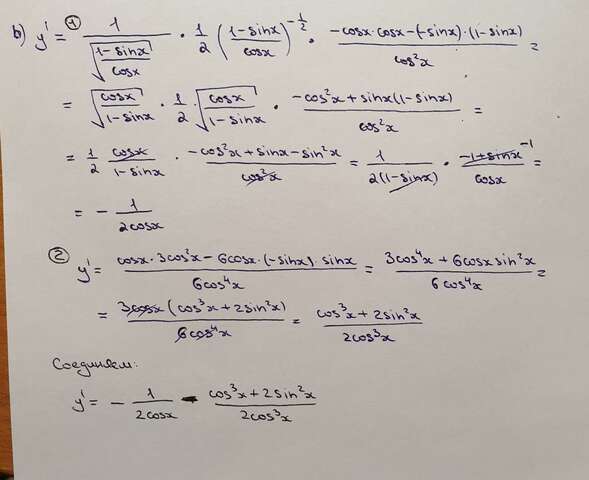 b) y' = ① 1/√((1-sinx)/cosx) · 1/2 ((1-sinx)/cosx)^(-1/2) · (-cosx·cosx-(-sinx)·(1-sinx))/cos²x =
= √(cosx/(1-sinx)) · 1/2 √(cosx/(1-sinx)) · (-cos²x+sinx(1-sinx))/cos²x =
= 1/2 cosx/(1-sinx) · (-cos²x+sinx-sin²x)/cos²x = 1/(2(1-sinx)) · (-1+sinx)/cosx ^-1 =
= - 1/(2cosx)
② y' = (cosx·3cos²x-6cosx·(-sinx)·sinx)/(6cos⁴x) = (3cos⁴x+6cosx sin²x)/(6cos⁴x) =
= 3cosx(cos³x+2sin²x)/(6cos⁴x) = (cos³x+2sin²x)/(2cos³x)
Соединяем:
y' = - 1/(2cosx) - (cos³x+2sin²x)/(2cos³x)